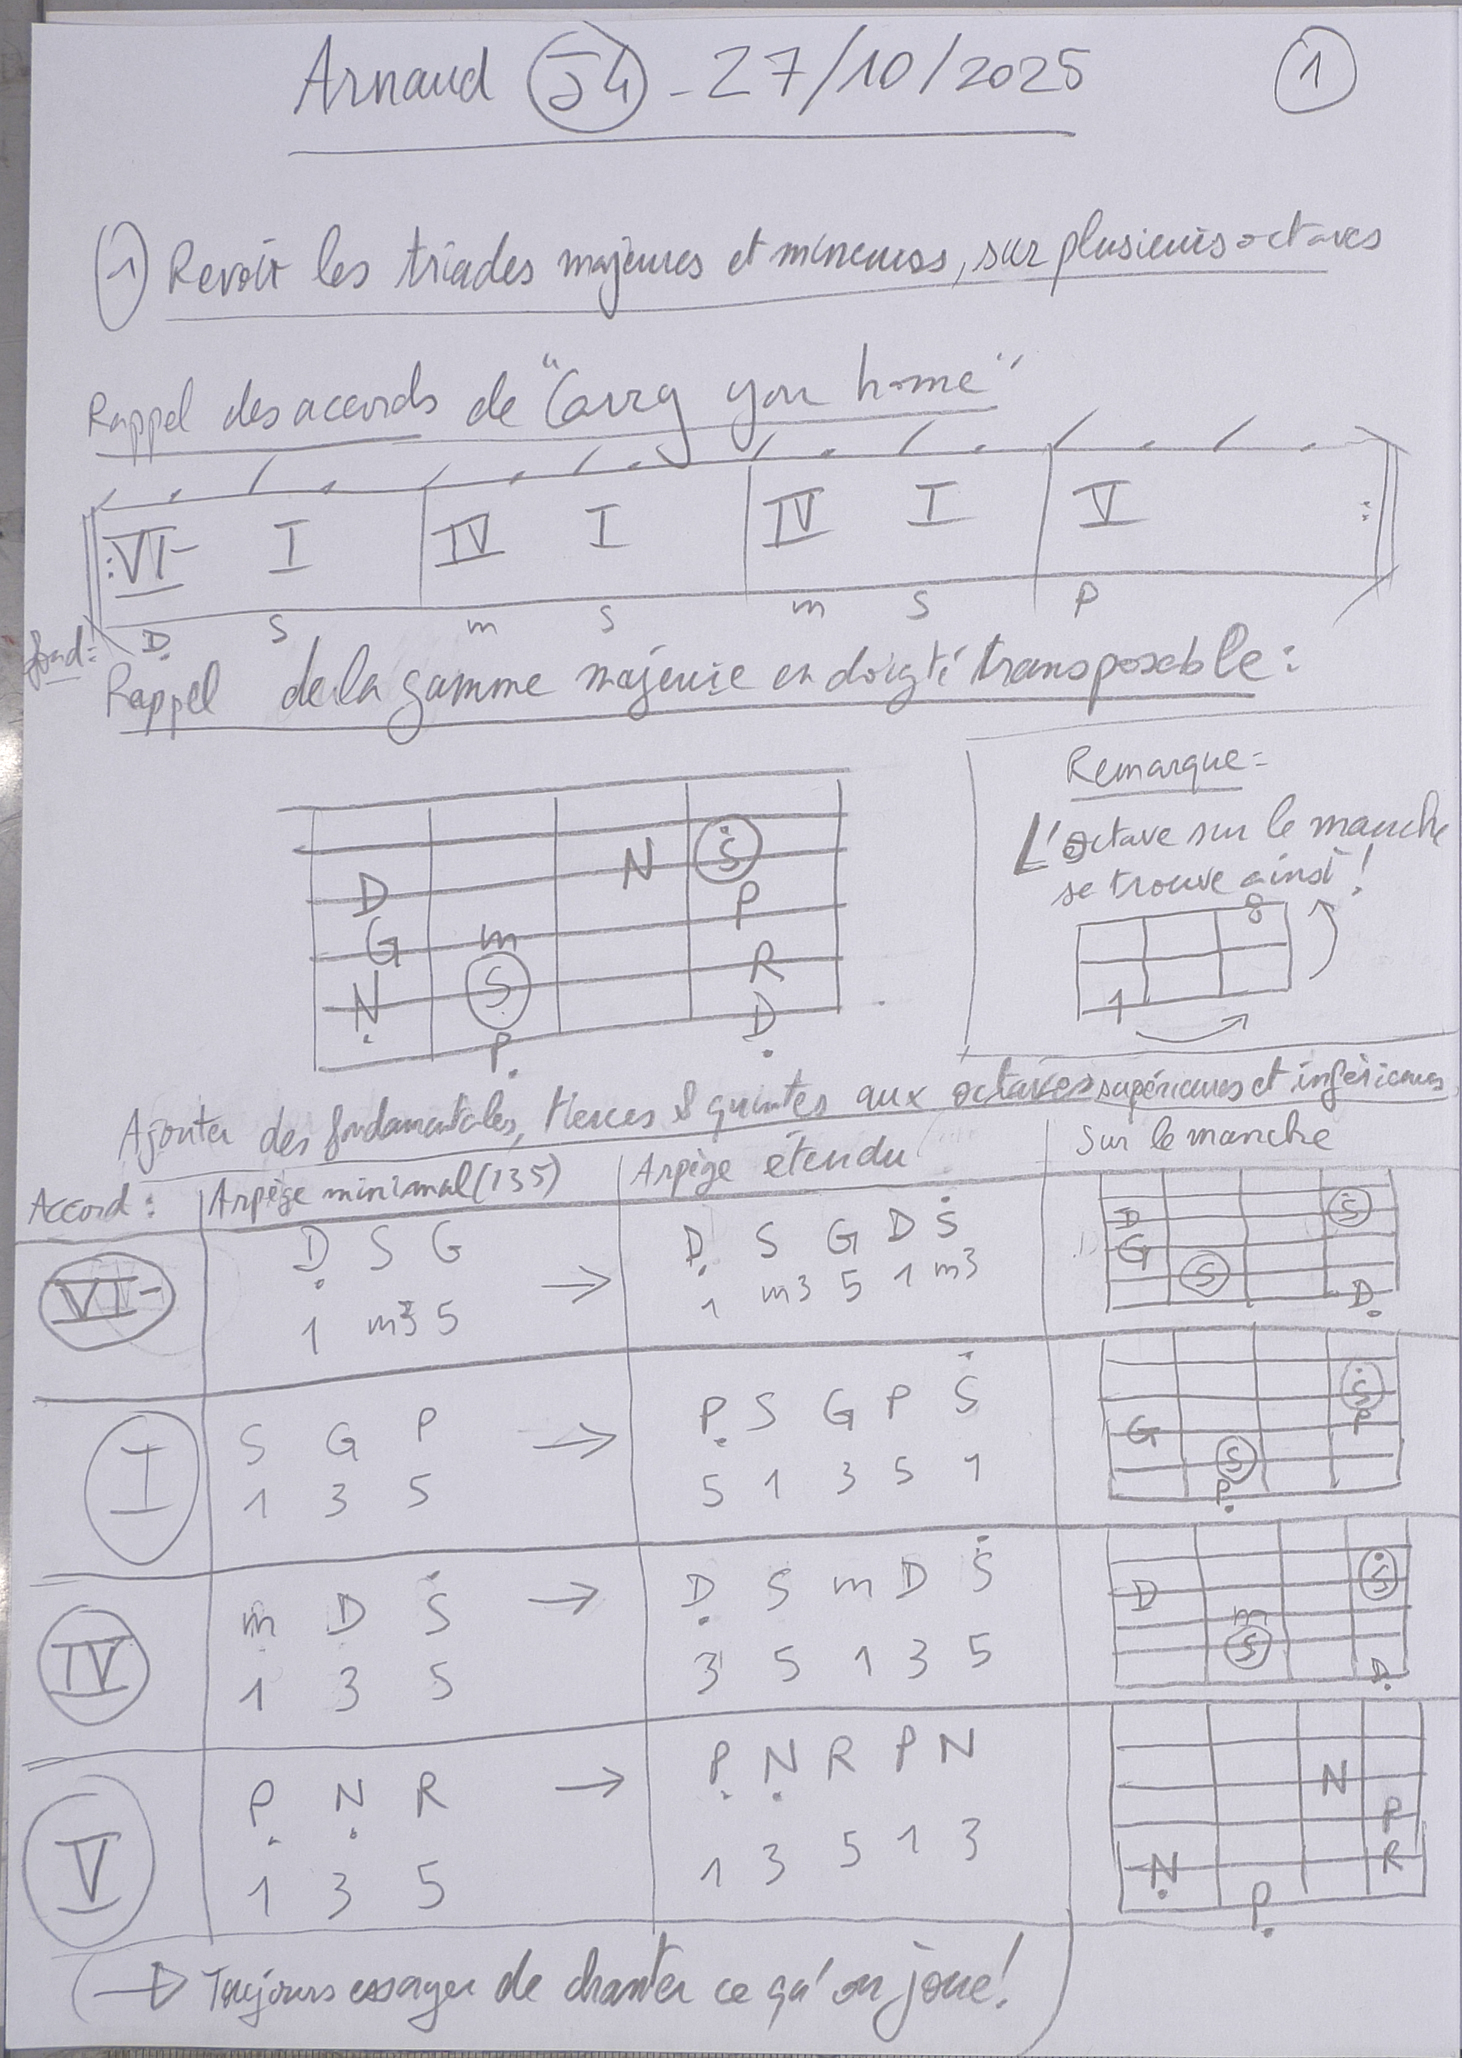 Arnaud J4 - 27/10/2025
1
1 Revoir les triades majeures et mineures, sur plusieurs octaves
Rappel des accords de "Carry you home"
VI- I IV I IV I V
fond: Ḍ S m S m S P
Rappel de la gamme majeure en doigté transposable :
N Ṡ
D P
G m R
Ṇ S Ḍ
P̣
Remarque :
L'octave sur le manche
se trouve ainsi !
8
1
Ajouter des fondamentales, tierces & quintes aux octaves supérieures et inférieures
Accord : Arpège minimal (135) Arpège étendu Sur le manche
VI- Ḍ S G → Ḍ S G D Ṡ
1 m3 5 1 m3 5 1 m3
D Ṡ
G
S Ḍ
I S G P → P̣ S G P Ṡ
1 3 5 5 1 3 5 1
Ṡ
G P
S
P̣
IV m D Ṡ → Ḍ S m D Ṡ
1 3 5 3 5 1 3 5
D Ṡ
m
S
Ḍ
V P̣ Ṇ R → P̣ Ṇ R P N
1 3 5 1 3 5 1 3
N
P
Ṇ R
P̣
→ Toujours essayer de chanter ce qu'on joue !